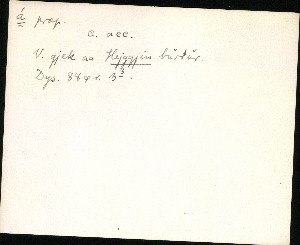 á prep.
c. acc.
V. gjek aa Hejggjún búrtúr.
Dys. 88 φ r. 3³.